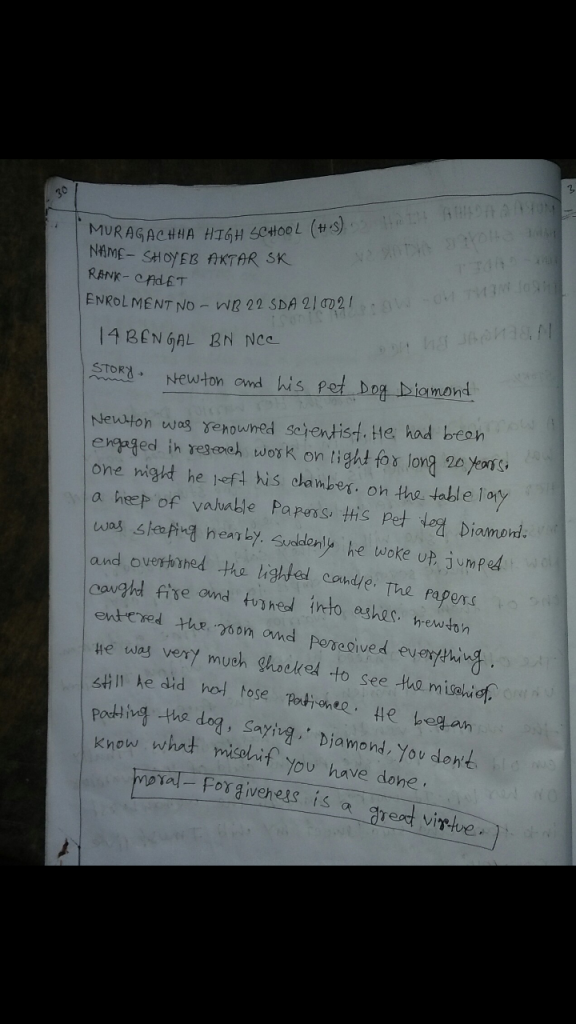 30
MURAGACHHA HIGH SCHOOL (H.S)
NAME- SHOYEB AKTAR SK
RANK- CADET
ENROLMENT NO - WB 22 SDA 210021
14 BENGAL BN NCC
STORY. Newton and his pet Dog Diamond
Newton was renowned scientist. He had been
engaged in reseach work on light for long 20 years.
one night he left his chamber. on the table lay
a heep of valuable Papers. His pet dog Diamond.
was sleeping nearby. suddenly he woke up, jumped
and overturned the lighted candle. The papers
caught fire and turned into ashes. newton
entered the room and perceived everything.
He was very much shocked to see the mischief.
still he did not lose Patience. He began
patting the dog, saying, "Diamond, you don't
know what mischif you have done.
moral- Forgiveness is a great virtue.